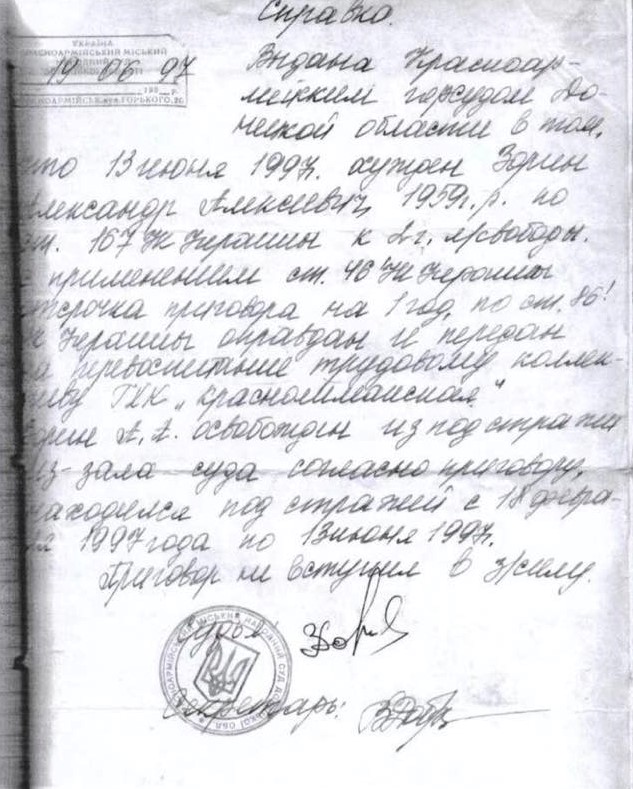 Справка.
УКРАЇНА
КРАСНОАРМІЙСЬКИЙ МІСЬКИЙ
НАРОДНИЙ СУД
19 06 97
199 р.
КРАСНОАРМІЙСЬК, вул. ГОРЬКОГО, 20
Видана Красноар-
мейским горсудом До-
нецкой области в том,
что 13 июня 1997г. осужден Зорин
Александр Алексеевич, 1959г.р. по
ст. 167 УК Украины к 2 г. л/свободы.
с применением ст. 46' УК Украины
отсрочка приговора на 1 год, по ст. 86'
УК Украины оправдан и передан
на перевоспитание трудовому коллек-
тиву ГХК „Краснолиманская"
Зорин А.А. освобожден из под стражи
из-зала суда согласно приговору,
находился под стражей с 18 февра-
ля 1997 года по 13 июня 1997г.
Приговор не вступил в з/силу.
Судья
Секретарь:
КРАСНОАРМІЙСЬКИЙ МІСЬКИЙ НАРОДНИЙ СУД ДОНЕЦЬКОЇ ОБЛ.